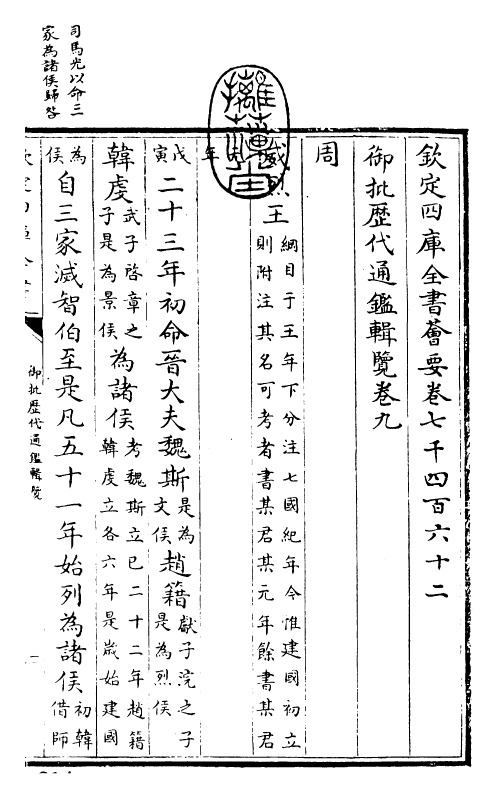 欽定四庫全書薈要卷七千四百六十二
御批歷代通鑑輯覽卷九
周
威烈王綱目于王年下分注七國紀年今惟建國初立
則附注其名可考者書某君某元年餘書某君
年
戊寅二十三年初命晉大夫魏斯是為文侯趙籍獻子浣之子是為烈侯
韓虔武子啓章之子是為景侯為諸侯考魏斯立已二十二年趙籍韓虔立各六年是歲始建國
為侯自三家滅智伯至是凡五十一年始列為諸侯初韓借師
御批歷代通鑑輯覽
一
司馬光以命三
家為諸侯歸咎